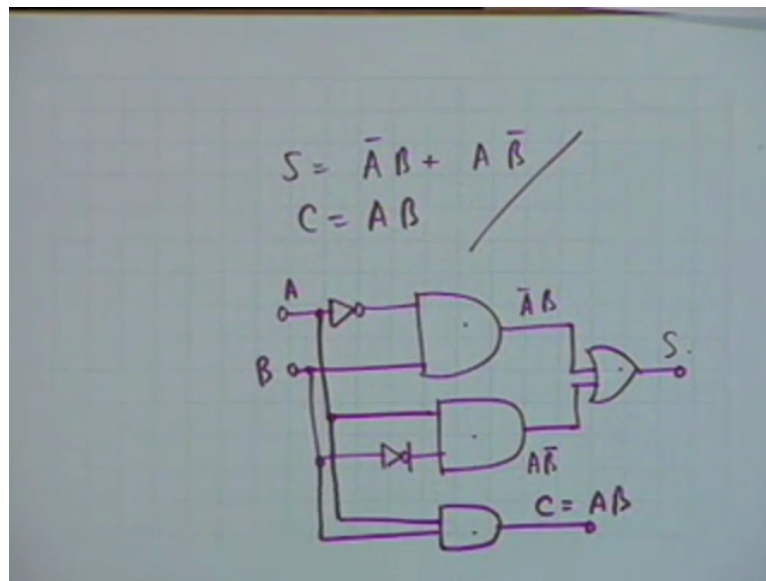 S = A̅ B + A B̅
C = A B
A
A̅ B
S.
B
A B̅
C = A B